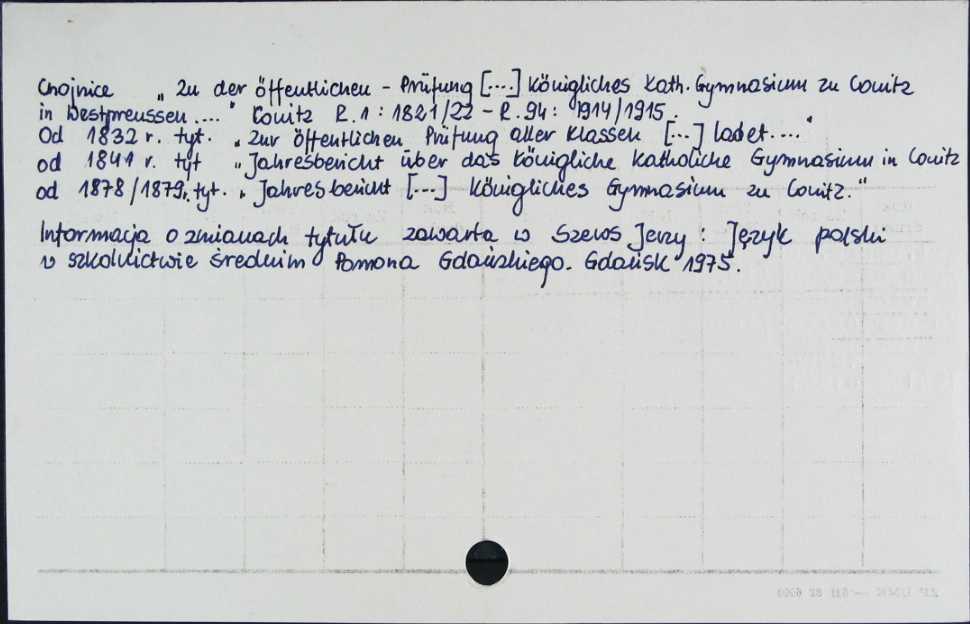 Chojnice „ Zu der öffentlichen - Prüfung [....] Königliches Kath. Gymnasium zu Conitz
in Westpreussen ...." Konitz R. 1 : 1821/22 - R. 94 : 1914/1915.
Od 1832 r. tyt. „Zur öffentlichen Prüfung aller Klassen [...] ladet...."
od 1841 r. tyt „Jahresbericht über das Königliche Katholiche Gymnasium in Conitz
od 1878/1879r. tyt. „Jahresbericht [...] Königliches Gymnasium zu Conitz."
Informacja o zmianach tytułu zawarta w Szews Jerzy : Język polski
w szkolnictwie średnim Pomona Gdańskiego. Gdańsk 1975.